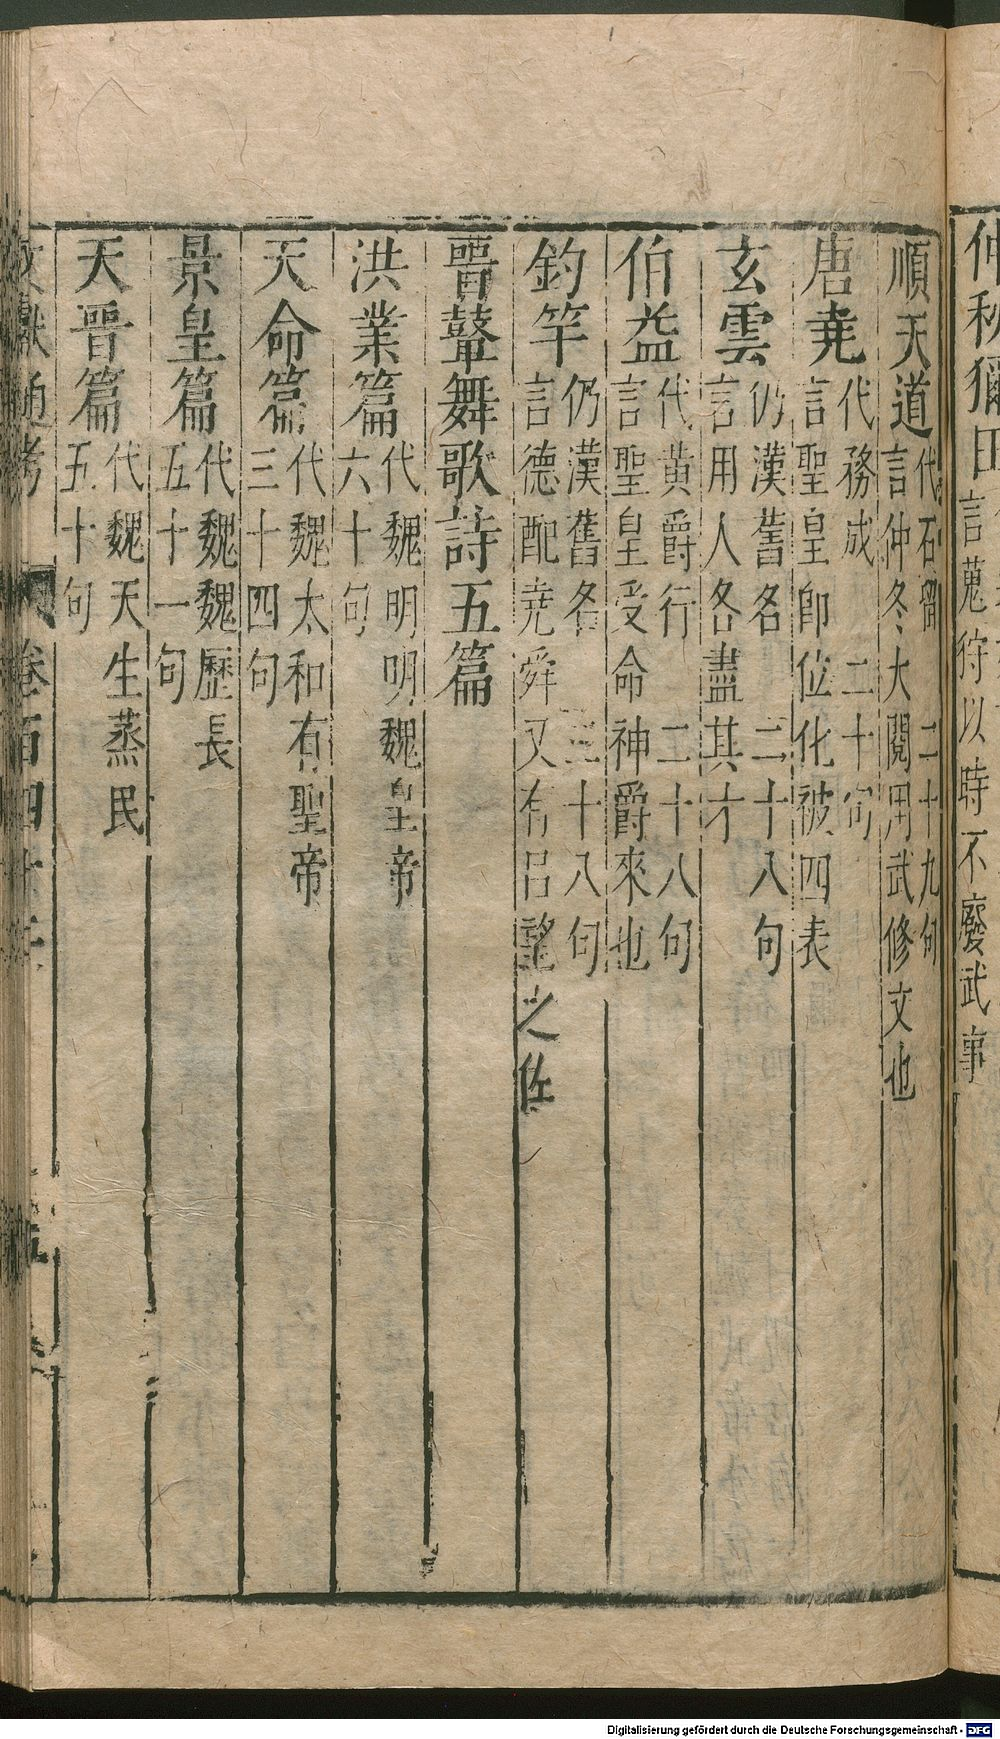 仲秋獮田言蒐狩以時不廢武事
順天道代石留 二十九句
言仲冬大閱用武修文也
唐堯代務成 二十句
言聖皇卽位化被四表
玄雲仍漢舊名 二十八句
言用人各盡其才
伯益代黄爵行 二十八句
言聖皇受命神爵來也
釣竿仍漢舊名 三十八句
言德配堯舜又有呂望之佐
晋鼙舞歌詩五篇
洪業篇代魏明明魏皇帝
六十句
天命篇代魏太和有聖帝
三十四句
景皇篇代魏魏歷長
五十一句
天晋篇代魏天生蒸民
五十句
文獻通考 卷百四十
Digitalisierung gefördert durch die Deutsche Forschungsgemeinschaft - DFG